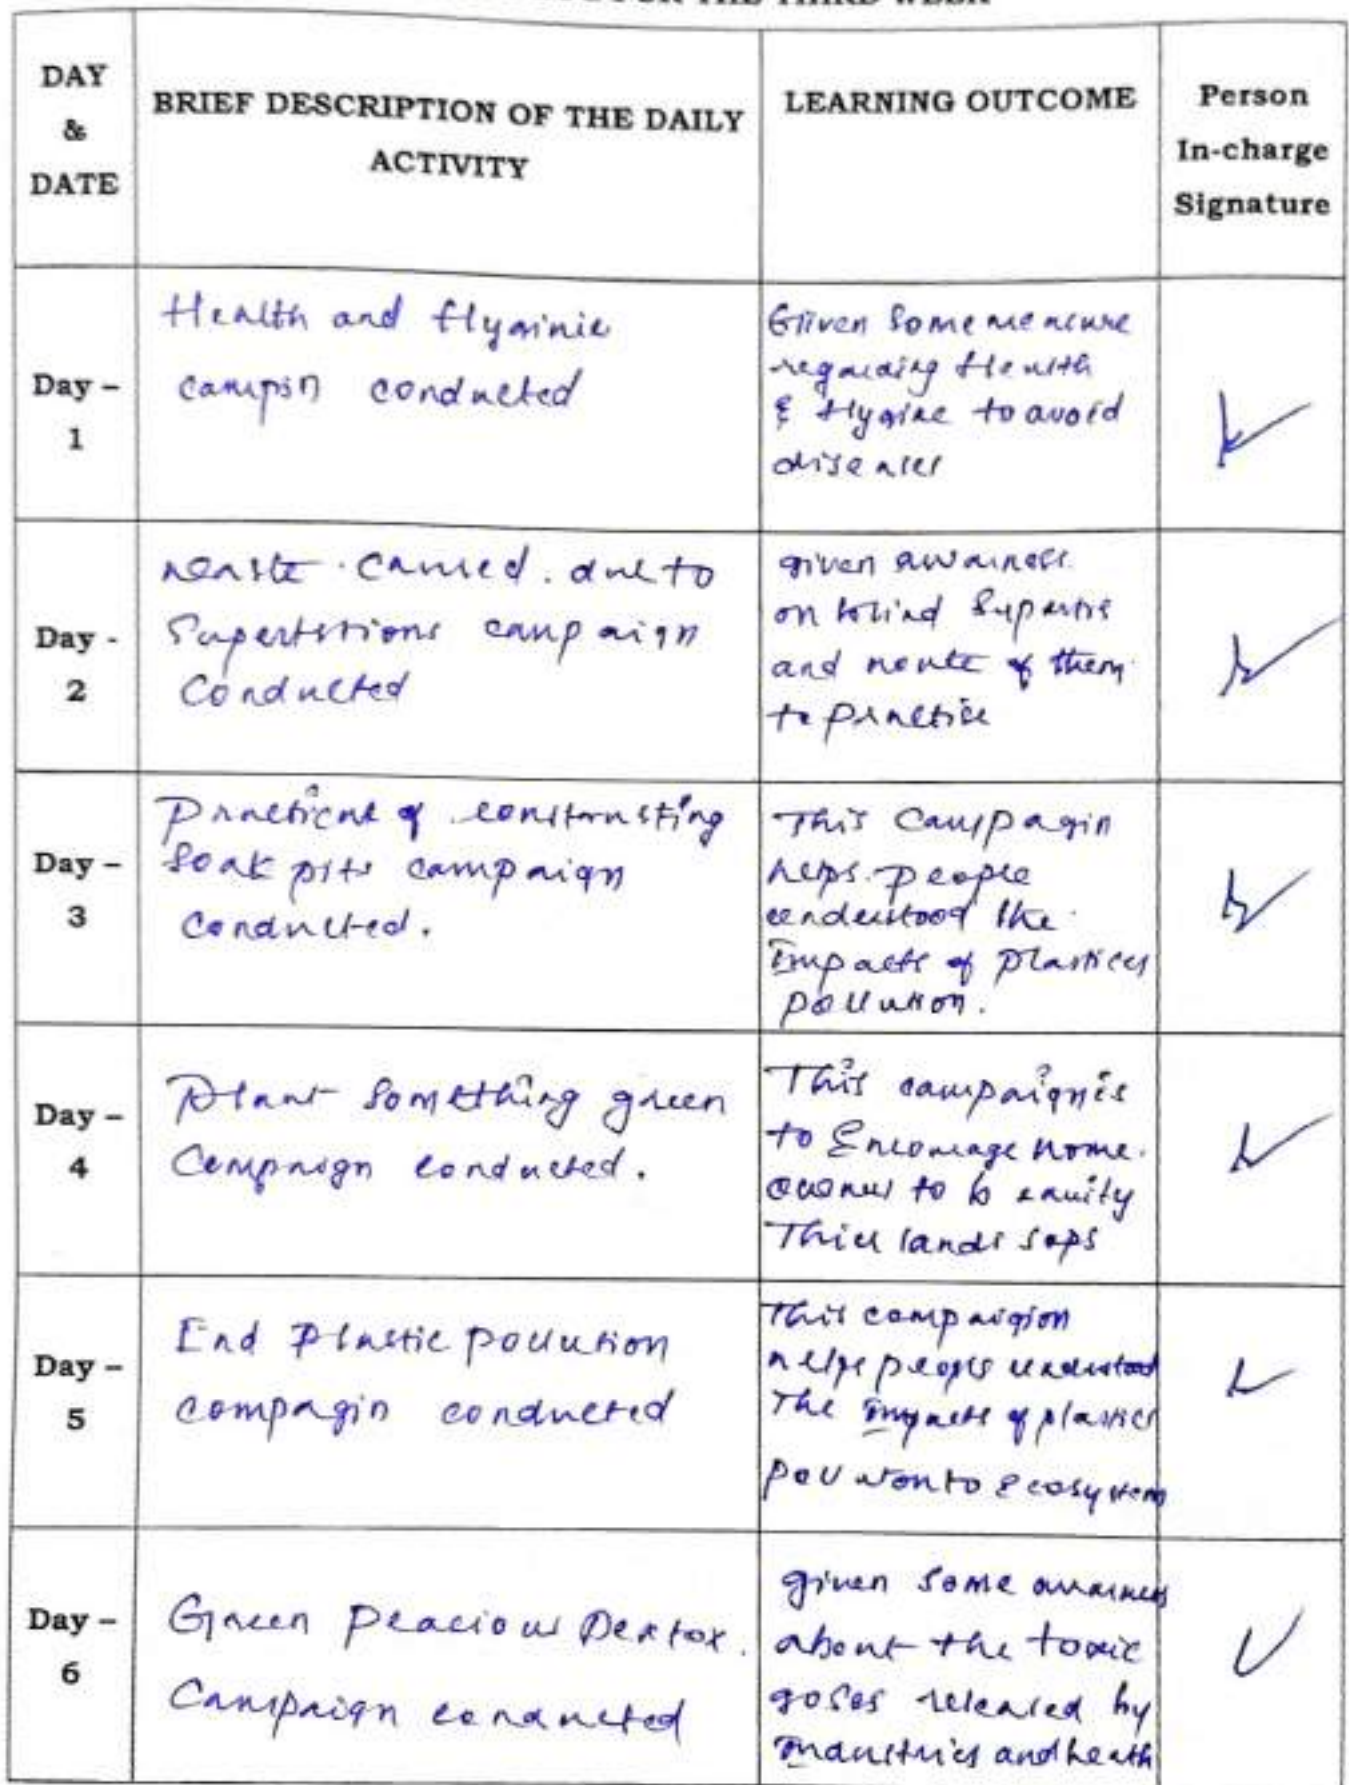 FOR THE THIRD WEEK
DAY
&
DATE
BRIEF DESCRIPTION OF THE DAILY
ACTIVITY
LEARNING OUTCOME
Person
In-charge
Signature
Day –
1
Health and Hyginie
campsn conducted
Given some
regarding Health
& Hygine to avoid
diseases
Day -
2
caused. due to
campaign
Conducted
given
on blind
and of them
to practise
Day –
3
of constructing
Soak pits campaign
Conducted.
This Campagin
helps people
understood the
Impacts of plastics
pollution.
Day –
4
Plant Something green
Campaign conducted.
This campaign is
to Encourage home
owner to
lands
Day –
5
End Plastic pollution
compagin conducted
This compaigion
helps people understood
The Impacts of plastics
to Ecosystem
Day –
6
Green
Campaign conducted
given some
about the toxic
goses released by
Industries and heath